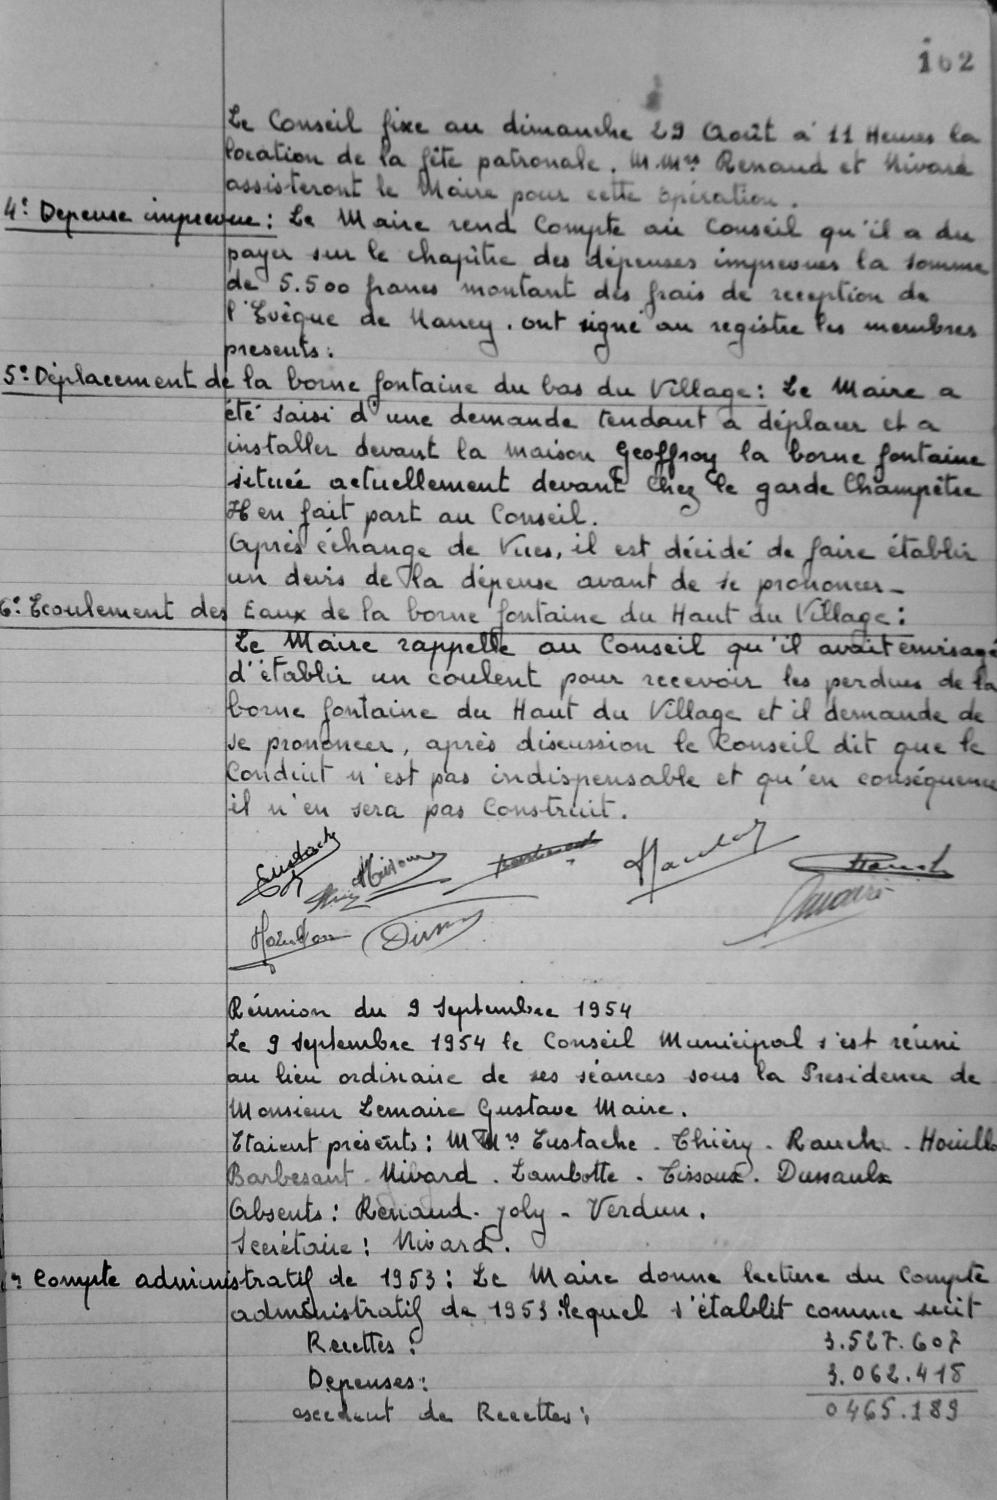 102
Le Conseil fixe au dimanche 29 Août à 11 Heures la
location de la fête patronale. M.Mrs Renaud et Nivard
assisteront le Maire pour cette opération.
4° Depense imprevue: Le Maire rend Compte au Conseil qu'il a du
payer sur le chapître des dépenses imprevues la somme
de 5.500 francs montant des frais de reception de
l'Evêque de Nancy. ont signé au registre les membres
presents:
5° Déplacement de la borne fontaine du bas du Village: Le Maire a
été saisi d'une demande tendant a déplacer et a
installer devant la maison Geoffroy la borne fontaine
située actuellement devant Chez le garde Champêtre
Il en fait part au Conseil.
Après échange de Vues, il est décidé de faire établir
un devis de la dépense avant de se prononcer_
6° Ecoulement des Eaux de la borne fontaine du Haut du Village:
Le Maire rappelle au Conseil qu'il avait envisagé
d'établir un coulent pour recevoir les perdues de la
borne fontaine du Haut du Village et il demande de
se prononcer, après discussion le Conseil dit que le
Conduit n'est pas indispensable et qu'en conséquence
il n'en sera pas Construit.
Eustache
Réunion du 9 Septembre 1954
Le 9 Septembre 1954 le Conseil Municipal s'est réuni
au lieu ordinaire de ses séances sous la Presidence de
Monsieur Lemaire Gustave Maire.
Etaient présents: M Mrs Eustache - Thiéry - Rauch - Houillo
Barbesant - Nivard - Lambotte - Tissoux - Dussaulx
Absents: Renaud - Joly - Verdun.
Secrétaire: Nivard.
Compte administratif de 1953: Le Maire donne lecture du Compte
administratif de 1953 lequel s'établit comme suit
Recettes: 3.527.607
Depenses: 3.062.418
excedent de Recettes: 0465.189